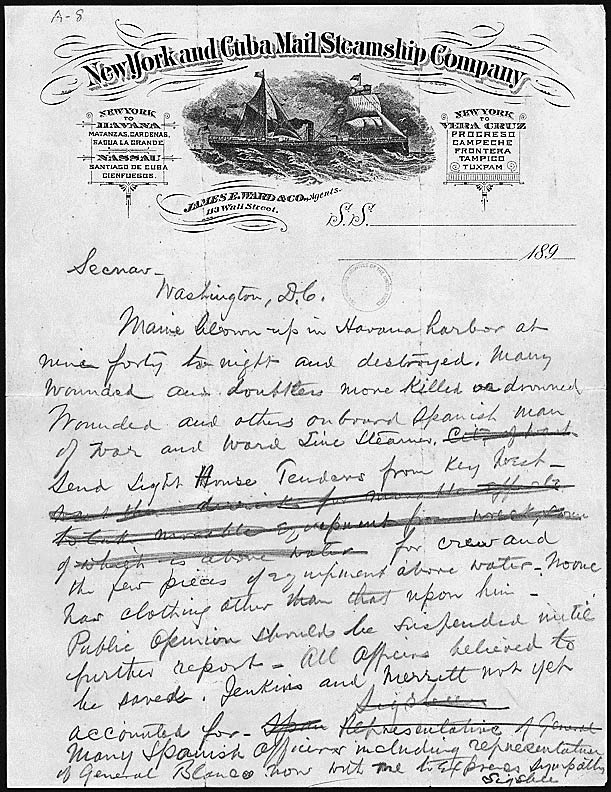 A-8
New York and Cuba Mail Steamship Company
NEW YORK
TO
HAVANA
MATANZAS, CARDENAS,
SAGUA LA GRANDE
NASSAU
SANTIAGO DE CUBA
CIENFUEGOS.
NEW YORK
TO
VERA CRUZ
PROGRESO
CAMPECHE
FRONTERA
TAMPICO
TUXPAM
JAMES E. WARD & CO., Agents.
113 Wall Street.
S.S.
189
Secnav-
Washington, D.C.
Maine blown up in Havana harbor at
nine forty to night and destroyed. Many
wounded and doubtless more killed or drowned
Wounded and others onboard Spanish man
of war and Ward Line Steamer. City of
Send Light House Tenders from Key West-
equipment from wreck,
of which is above water for crew and
the few pieces of equipment above water - No one
has clothing other than that upon him -
Public Opinion should be suspended until
further report - All Officers believed to
be saved. Jenkins and Merritt not yet
Sigsbee
accounted for - Span Representative of General
Many Spanish Officers including representative
of General Blanco now with me to express sympathy
Sigsbee